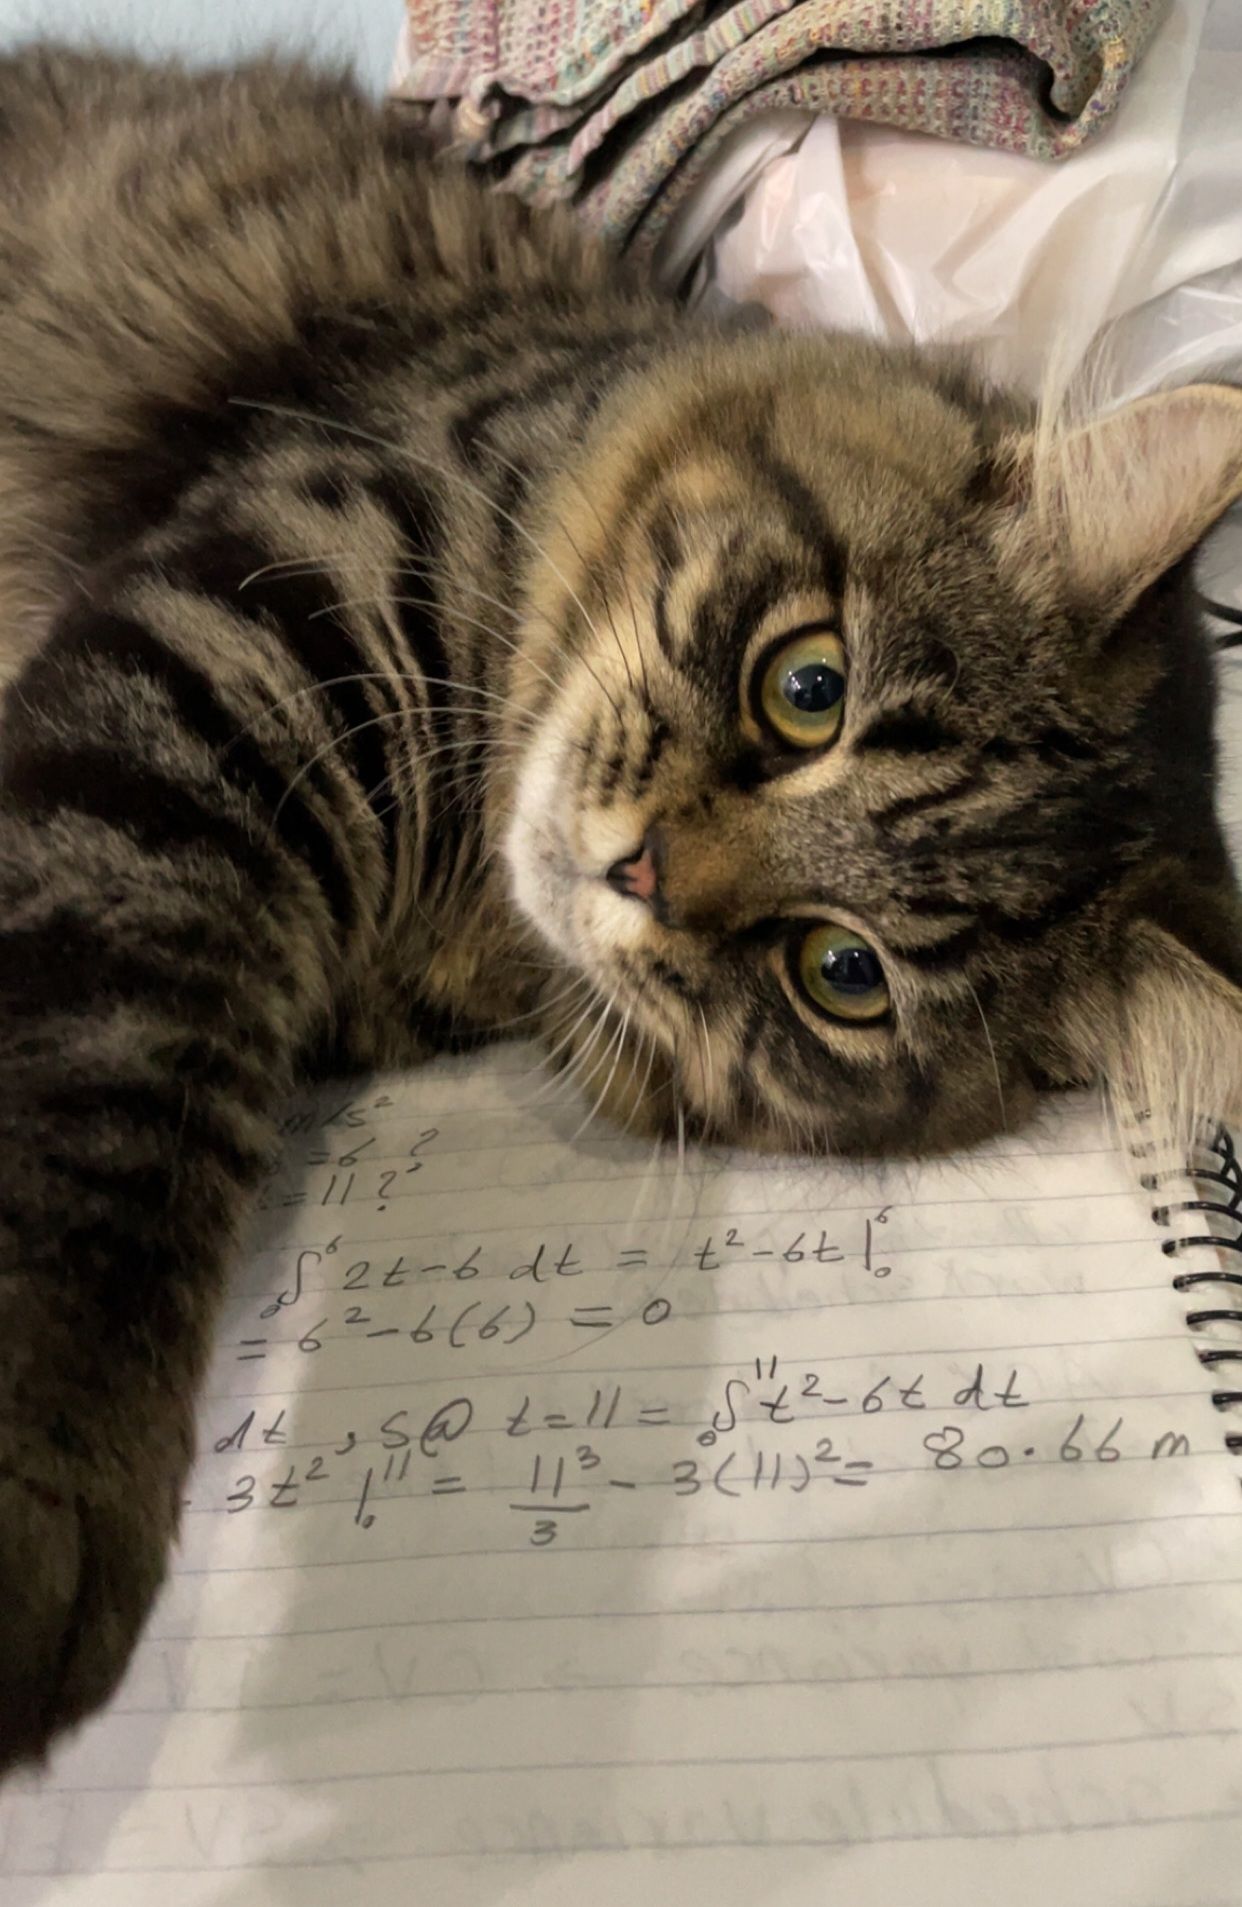 m/s²
=6 ?
=11?
₀∫⁶ 2t-6 dt = t²-6t|₀⁶
= 6²-6(6) = 0
dt, s@ t=11 = ₀∫¹¹ t²-6t dt
3t² |₀¹¹ = 11³/3 - 3(11)² = 80.66 m